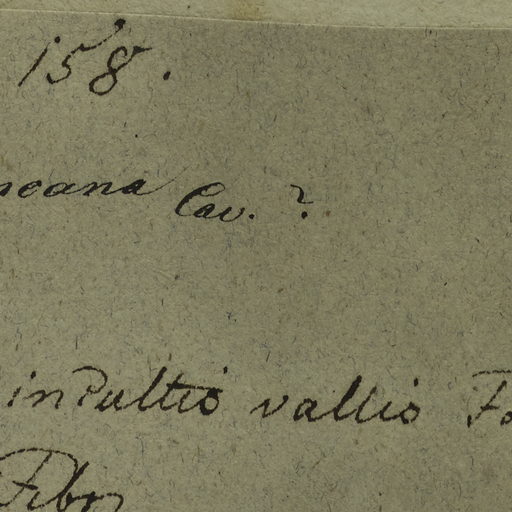 158.
neana Cav. ?
incultis vallis
Febr